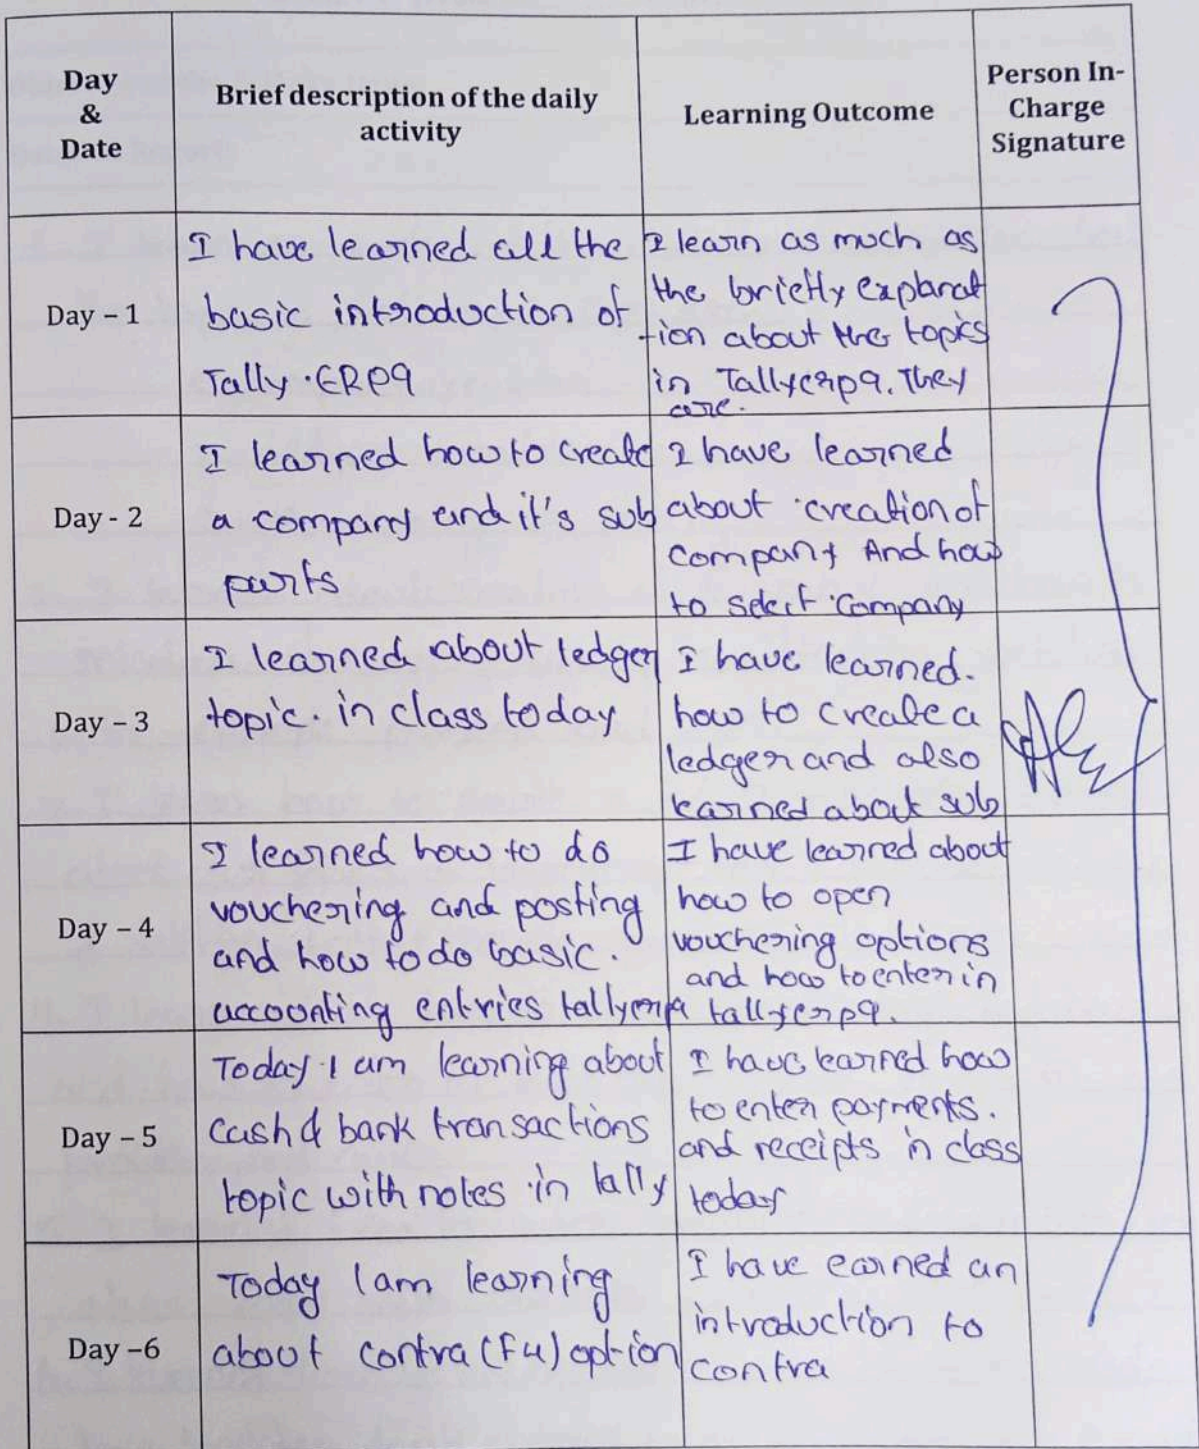 Day
&
Date
Brief description of the daily
activity
Learning Outcome
Person In-
Charge
Signature
Day – 1
I have learned all the
basic introduction of
Tally.ERP9
I learn as much as
the briefly explanat
-ion about the topics
in Tallyerp9. They
are.
Day - 2
I learned how to create
a company and it's sub
parts
I have learned
about creation of
company And how
to select company
Day – 3
I learned about ledger
topic. in class today
I have learned.
how to create a
ledger and also
learned about sub
Day – 4
I learned how to do
vouchering and posting
and how to do basic.
accounting entries tallyerp9
I have learned about
how to open
vouchering options
and how to enter in
tallyerp9.
Day – 5
Today I am learning about
cash & bank transactions
topic with notes in tally
I have learned how
to enter payments.
and receipts in class
today
Day –6
Today I am learning
about contra (F4) option
I have earned an
introduction to
contra